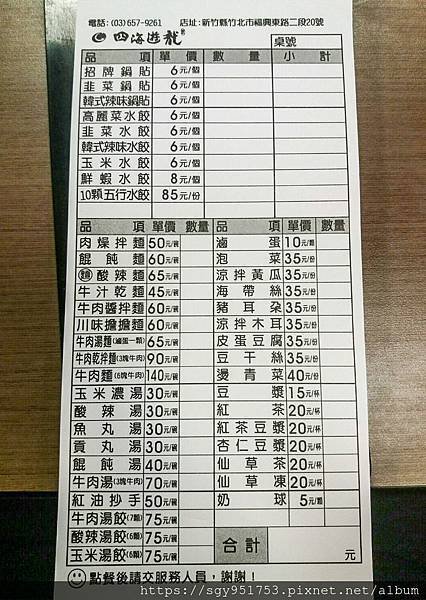 電話：(03)657-9261　店址：新竹縣竹北市福興東路二段20號
四海遊龍 桌號
品項 單價 數量 小計
招牌鍋貼 6元/個
韭菜鍋貼 6元/個
韓式辣味鍋貼 6元/個
高麗菜水餃 6元/個
韭菜水餃 6元/個
韓式辣味水餃 6元/個
玉米水餃 6元/個
鮮蝦水餃 8元/個
10顆五行水餃 85元/份
品項 單價 數量 品項 單價 數量
肉燥拌麵 50元/碗 滷蛋 10元/顆
餛飩麵 60元/碗 泡菜 35元/份
麵酸辣麵 65元/碗 涼拌黃瓜 35元/份
牛汁乾麵 45元/碗 海帶絲 35元/份
牛肉醬拌麵 60元/碗 豬耳朵 35元/份
川味擔擔麵 60元/碗 涼拌木耳 35元/份
牛肉湯麵(滷蛋一顆) 65元/碗 皮蛋豆腐 35元/份
牛肉乾拌麵(3塊牛肉) 90元/碗 豆干絲 35元/份
牛肉麵(6塊牛肉) 140元/碗 燙青菜 40元/份
玉米濃湯 30元/碗 豆漿 15元/杯
酸辣湯 30元/碗 紅茶 20元/杯
魚丸湯 30元/碗 紅茶豆漿 20元/杯
貢丸湯 30元/碗 杏仁豆漿 20元/杯
餛飩湯 40元/碗 仙草茶 20元/杯
牛肉湯(3塊牛肉) 70元/碗 仙草凍 20元/杯
紅油抄手 50元/碗 奶球 5元/顆
牛肉湯餃(7顆) 75元/碗
酸辣湯餃(6顆) 75元/碗 合計 元
玉米湯餃(6顆) 75元/碗
點餐後請交服務人員，謝謝！
https://sgy951753.pixnet.net/album